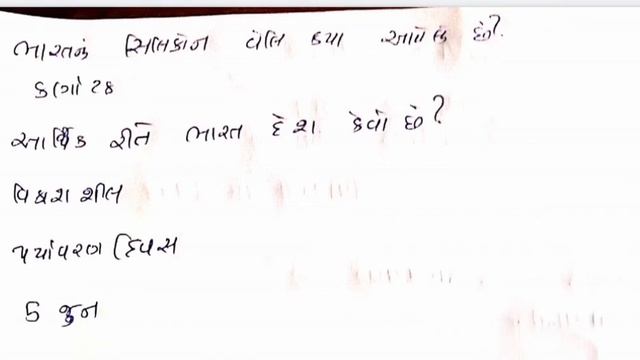 ભારતનું સિલિકોન વેલિ કયા આવેલ છે?
કર્ણાટક
આર્થિક રીતે ભારત દેશ કેવો છે?
વિકાશ શીલ
પર્યાવરણ દિવસ
5 જુન